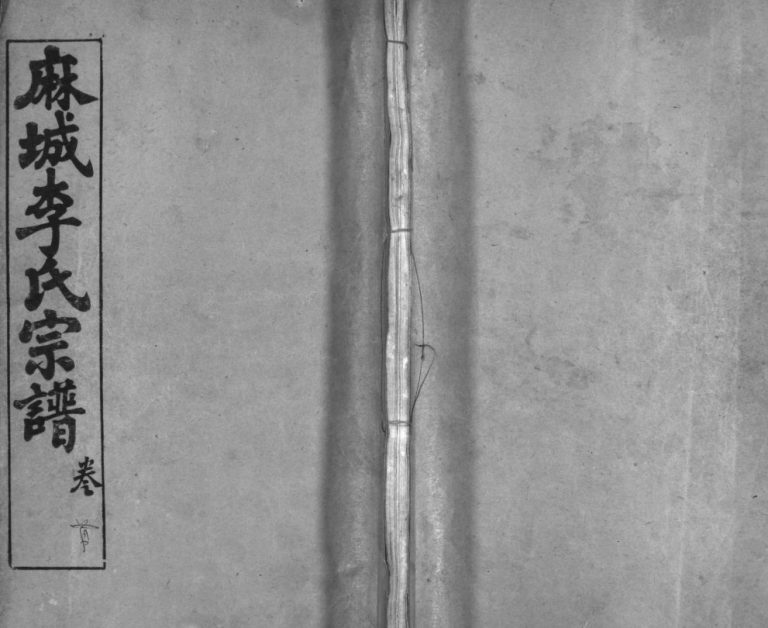 麻城李氏宗譜
卷首